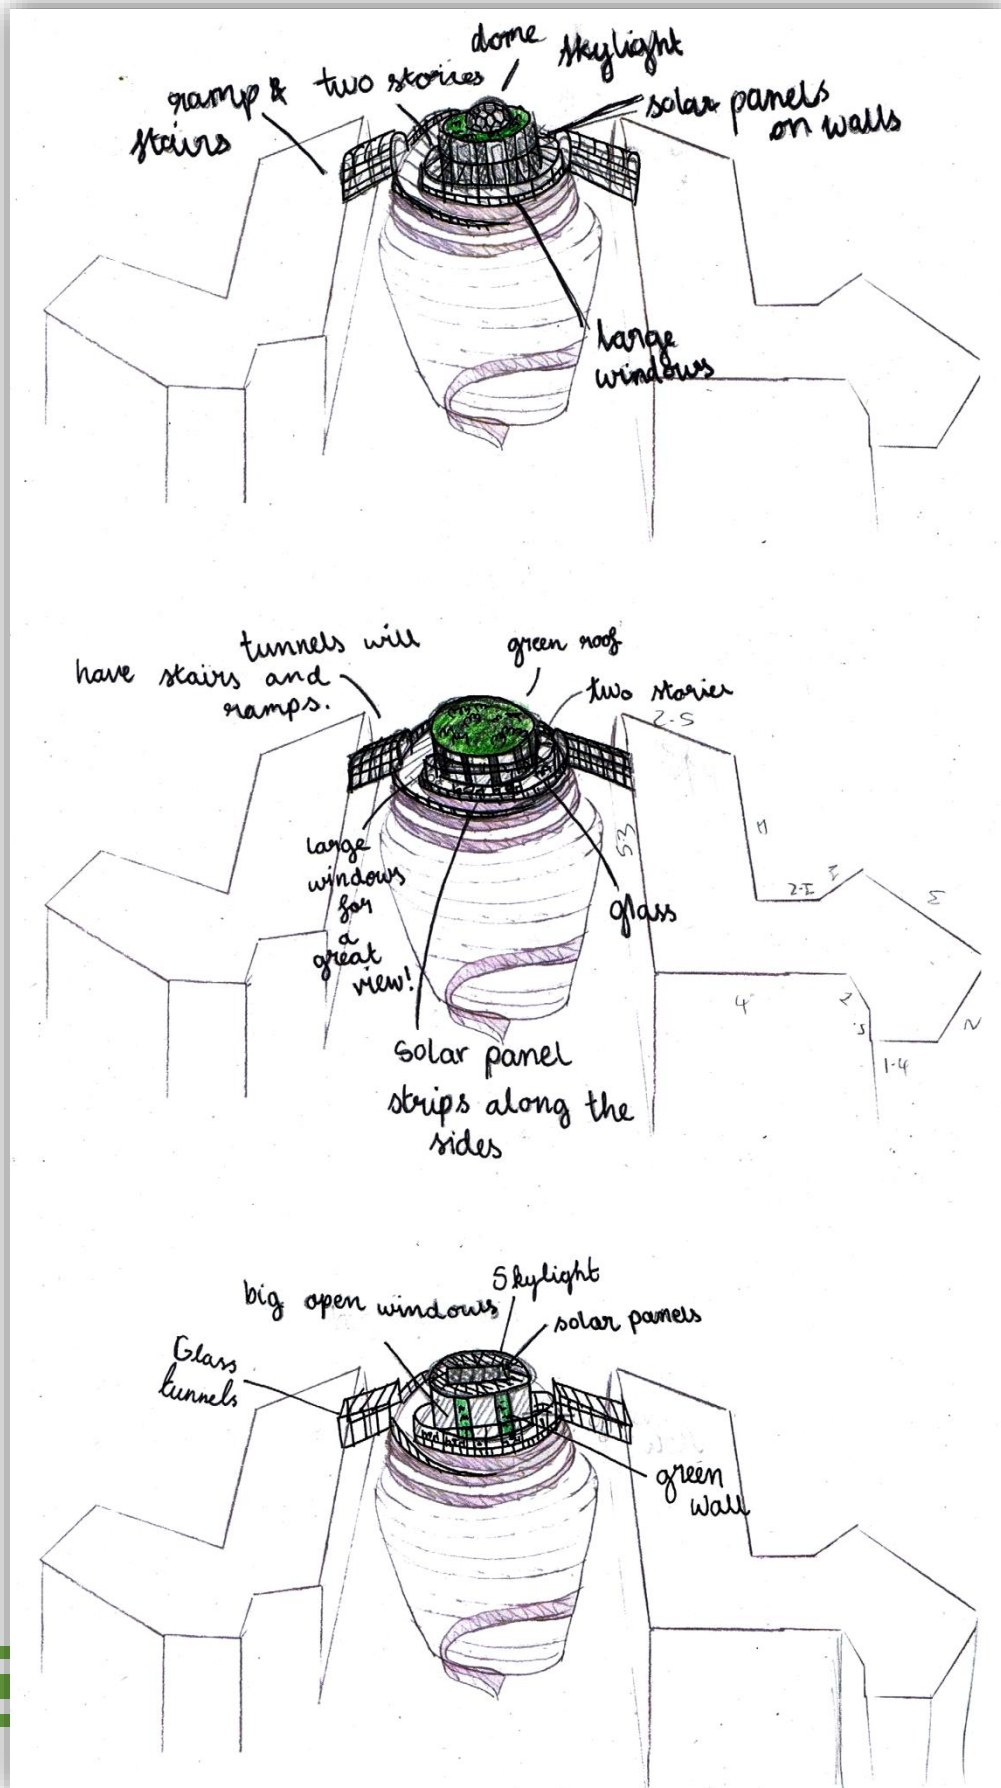 dome skylight
ramp & two stories
stairs
solar panels
on walls
large
windows
tunnels will
have stairs and
ramps.
green roof
two stories
2.5
53
4
large
windows
for
a
great
view!
glass
1.4
solar panel
strips along the
sides
Skylight
big open windows
solar panels
Glass
tunnels
green
wall